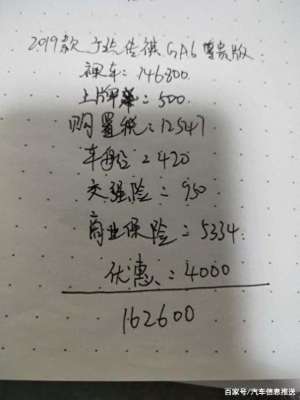 2019款 广汽传祺 GA6 尊贵版
裸车:146800
上牌费:500
购置税:12547
车船:420
交强险:950
商业保险:5334
优惠:4000
162600
百家号/汽车信息推送